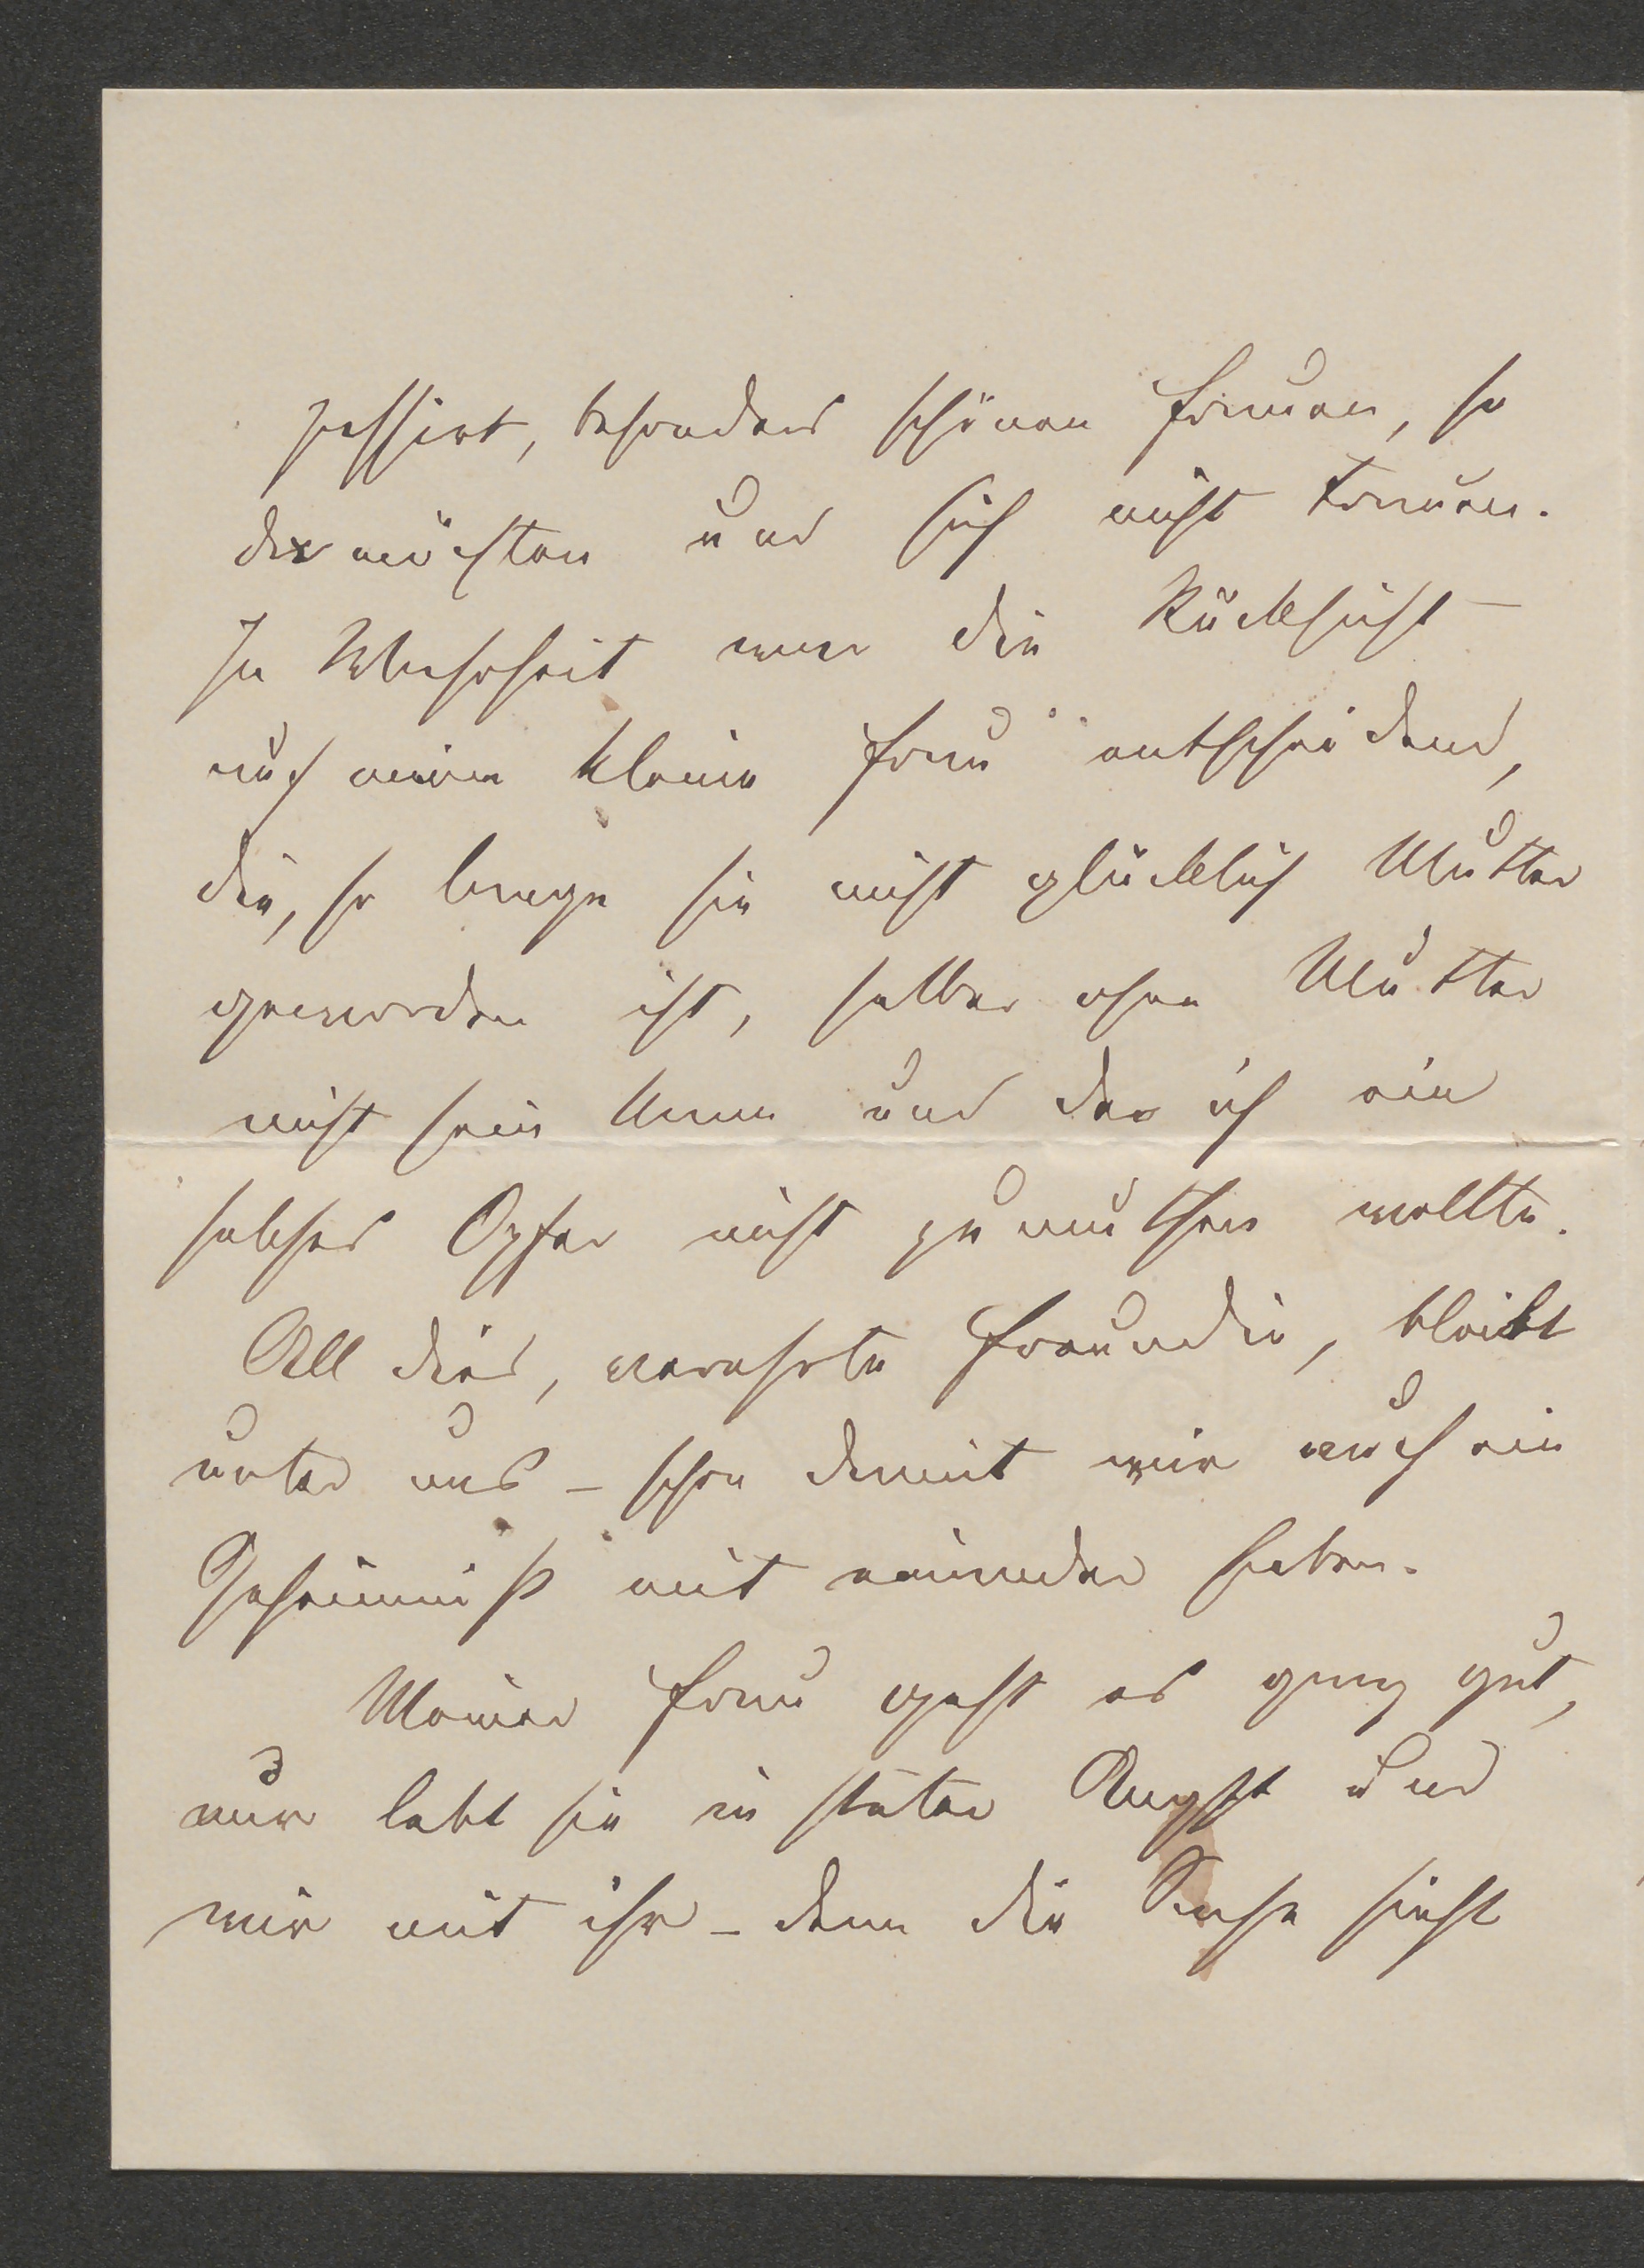 passirt, besonders schönen Frauen, so
die möchten und sich nicht trauen.
In Wahrheit war die Rücksicht
auf meine kleine Frau entscheidend,
die, so lange sie nicht glücklich Mutter
geworden ist, selber ohne Mutter
nicht sein kann und der ich ein
solches Opfer nicht zumuthen wollte.
All dies, verehrte Freundin, bleibt
unter uns – schon damit wir auch ein
Geheimniß mit einander haben.
Meiner Frau geht es ganz gut,
nur lebt sie in steter Angst und
wir mit ihr – denn die Sache sieht